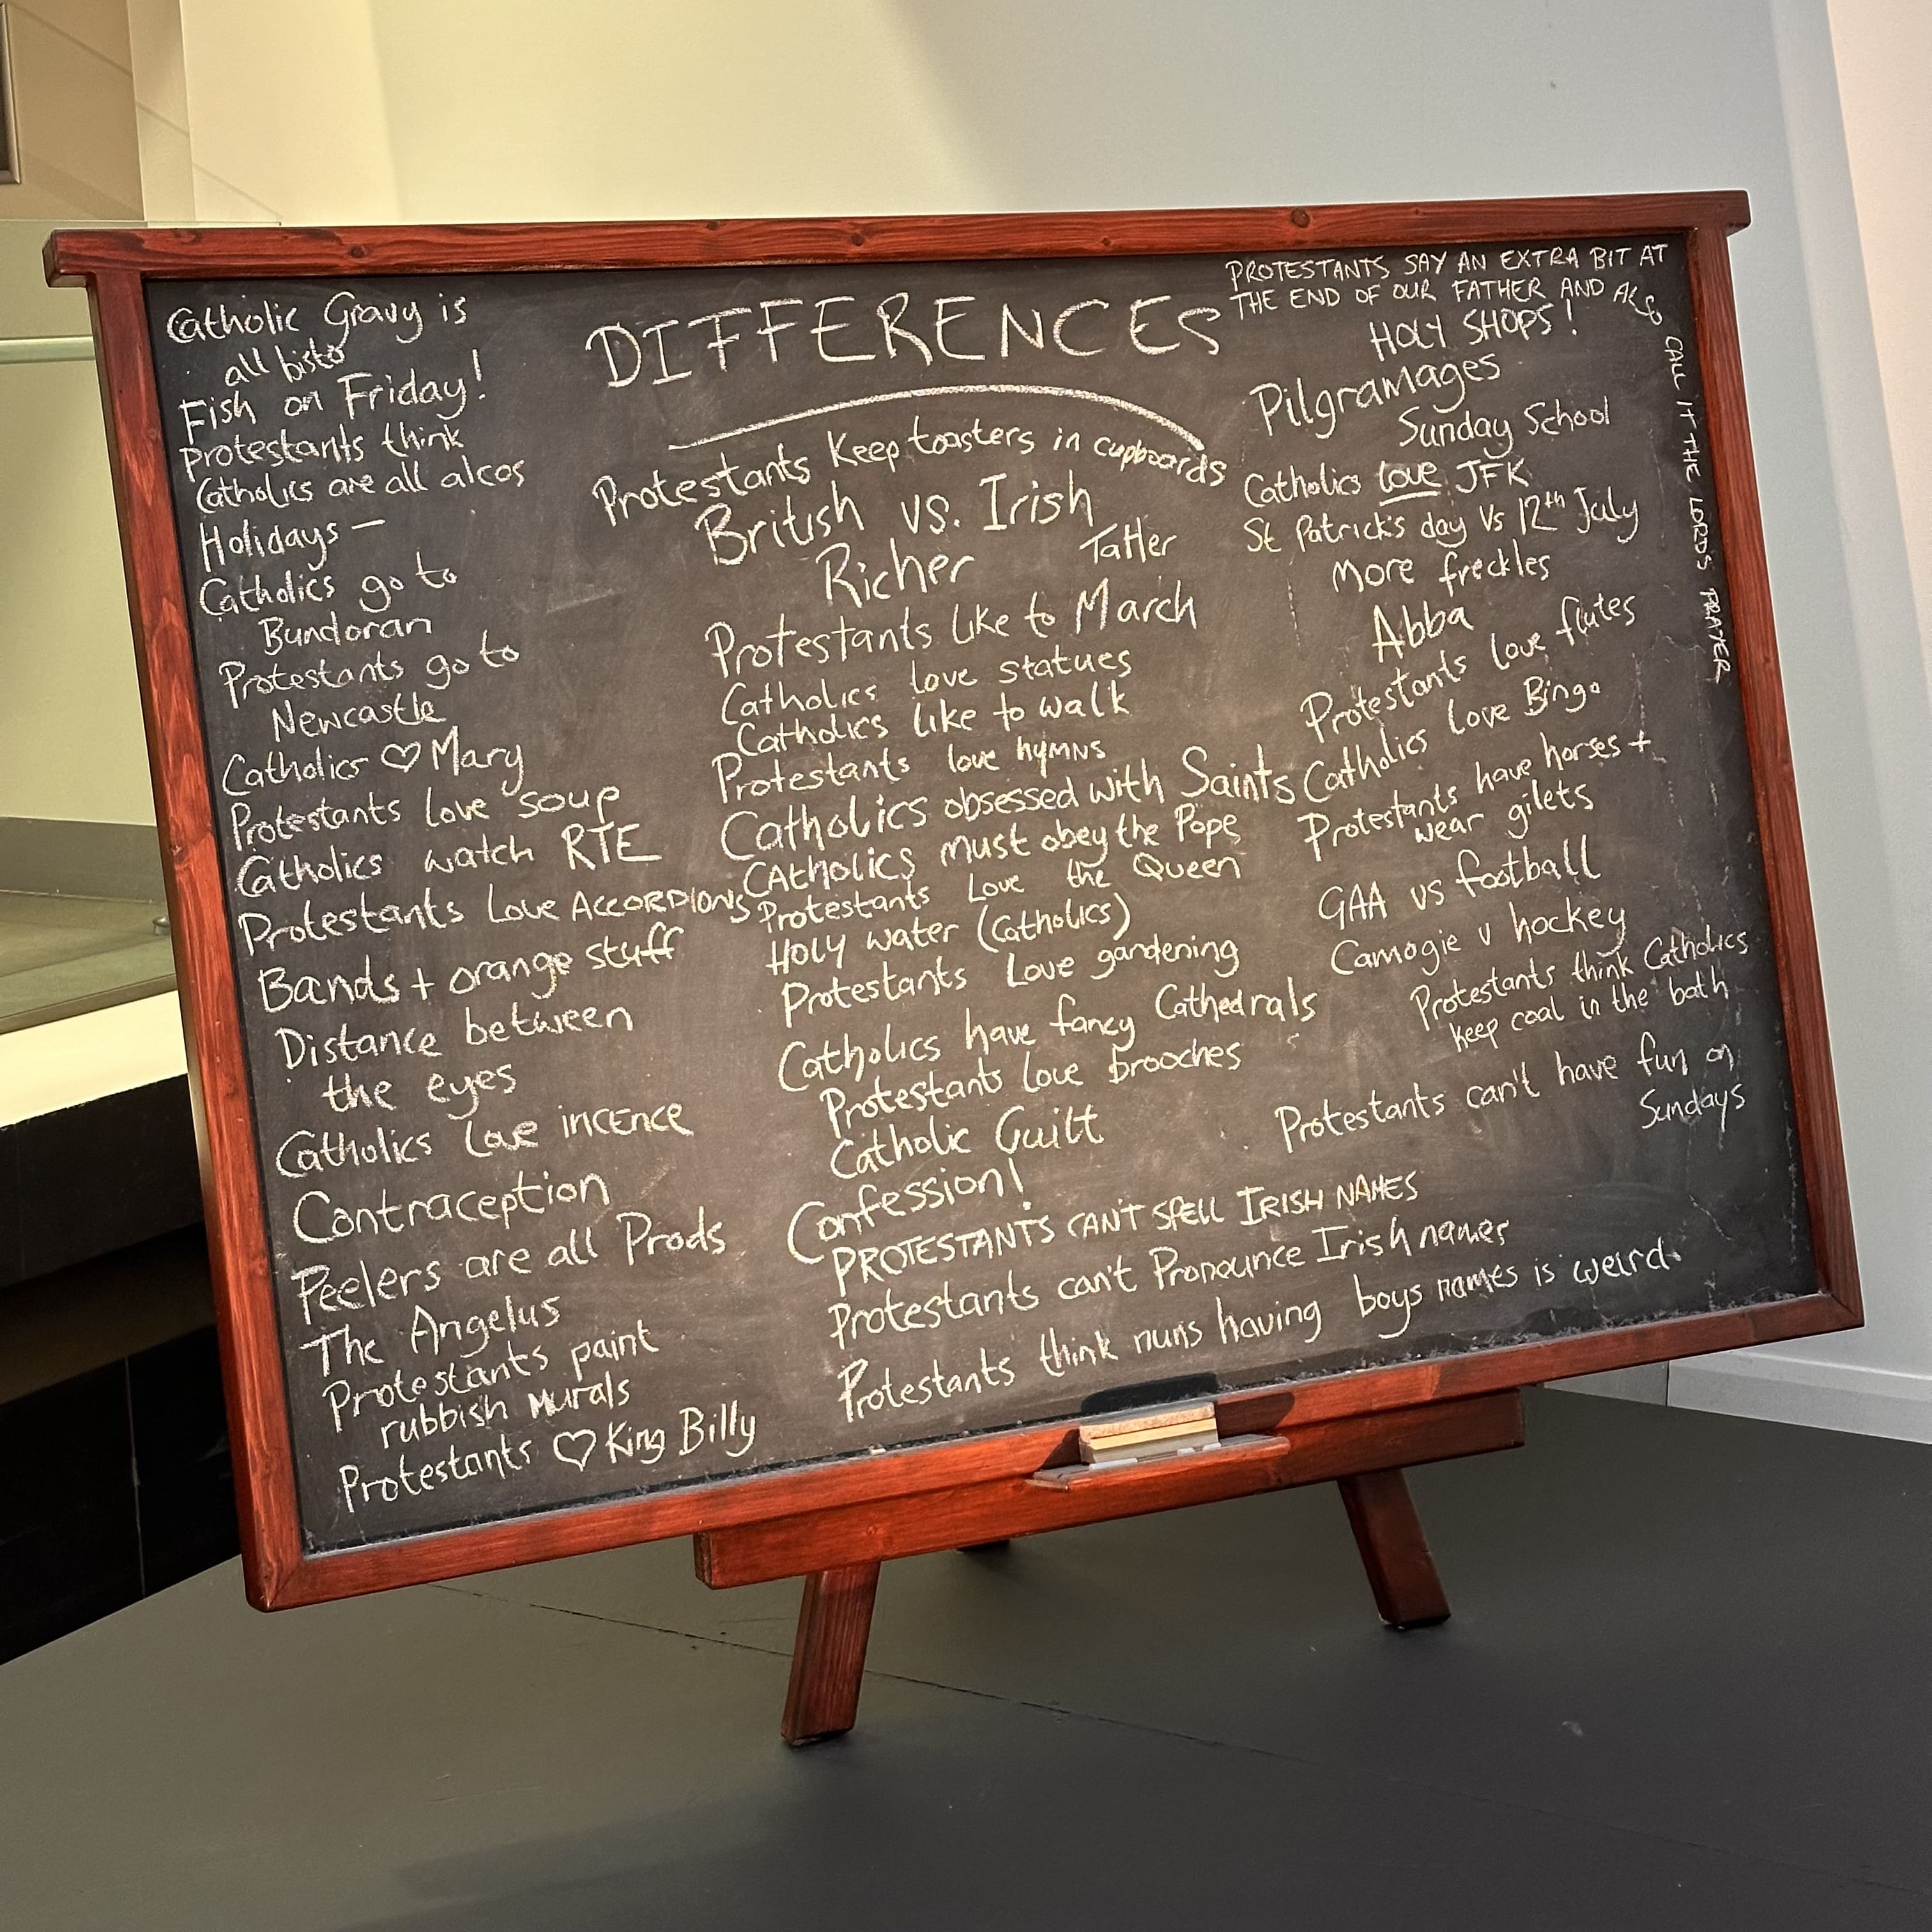 DIFFERENCES
Catholic Gravy is
all bisto
Fish on Friday!
Protestants think
Catholics are all alcos
Holidays —
Catholics go to
Bundoran
Protestants go to
Newcastle
Catholics ♡ Mary
Protestants love soup
Catholics watch RTE
Protestants Love ACCORDIONS
Bands + orange stuff
Distance between
the eyes
Catholics Love incence
Contraception
Peelers are all Prods
The Angelus
Protestants paint
rubbish murals
Protestants ♡ King Billy
Protestants Keep toasters in cupboards
British vs. Irish
Richer Taller
Protestants like to March
Catholics love statues
Catholics like to walk
Protestants love hymns
Catholics obsessed with Saints
CAtholics must obey the Pope
Protestants Love the Queen
HOLY water (Catholics)
Protestants Love gardening
Catholics have fancy Cathedrals
Protestants love brooches
Catholic Guilt
Confession!
PROTESTANTS CAN'T SPELL IRISH NAMES
Protestants can't Pronounce Irish names
Protestants think nuns having boys names is weird.
PROTESTANTS SAY AN EXTRA BIT AT
THE END OF OUR FATHER AND ALSO
CALL IT THE LORD'S PRAYER
HOLY SHOPS!
Pilgramages
Sunday School
Catholics love JFK
St Patrick's day Vs 12th July
More freckles
Abba
Protestants love flutes
Catholics Love Bingo
Protestants have horses +
wear gilets
GAA vs football
Camogie v hockey
Protestants think Catholics
keep coal in the bath
Protestants can't have fun on
Sundays